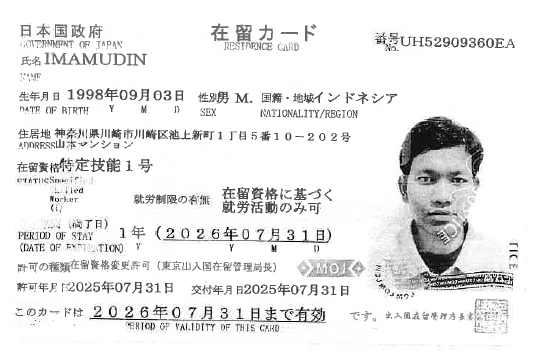 日本国政府 在留カード 番号 UH52909360EA
GOVERNMENT OF JAPAN RESIDENCE CARD No.
氏名 IMAMUDIN
NAME
生年月日 1998年09月03日 性別 男 M. 国籍・地域 インドネシア
DATE OF BIRTH Y M D SEX NATIONALITY/REGION
住居地 神奈川県川崎市川崎区池上新町1丁目5番10-202号
ADDRESS 山本マンション
在留資格 特定技能1号
STATUS Specified
Skilled
Worker
(i)
就労制限の有無 在留資格に基づく
就労活動のみ可
(満了日) 1年 (2026年07月31日)
PERIOD OF STAY
(DATE OF EXPIRATION) Y M Y M D
許可の種類 在留資格変更許可 (東京出入国在留管理局長) MOJ
許可年月日 2025年07月31日 交付年月日 2025年07月31日
このカードは 2026年07月31日まで有効 です。 出入国在留管理庁長官
PERIOD OF VALIDITY OF THIS CARD